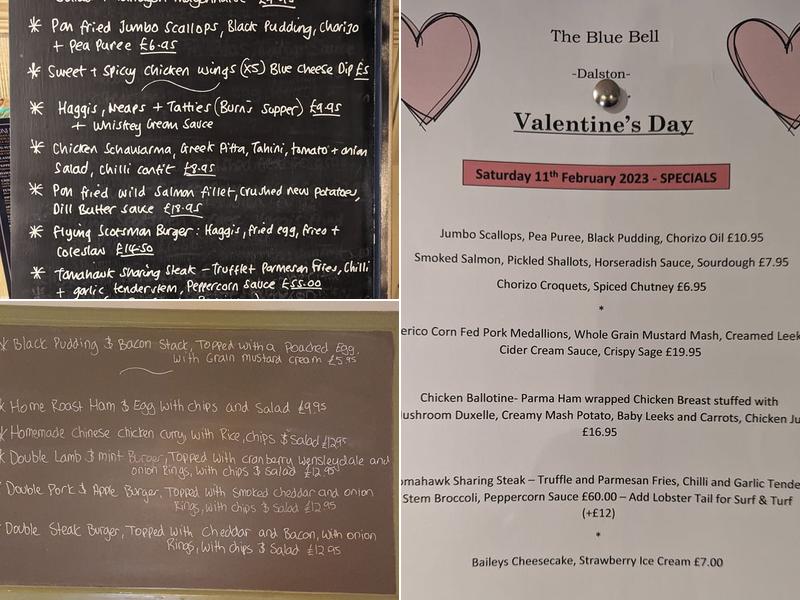 ✳ Pan fried Jumbo Scallops, Black Pudding, Chorizo
+ Pea Puree £6.95
✳ Sweet + Spicy chicken wings (x5) Blue Cheese Dip £5
✳ Haggis, Neaps + Tatties (Burn's Supper) £9.95
+ Whiskey Cream Sauce
✳ Chicken Schawarma, Greek Pitta, Tahini, tomato + onion
Salad, Chilli confit £8.95
✳ Pan fried wild Salmon fillet, crushed new potatoes,
Dill Butter sauce £18.95
✳ Flying Scotsman Burger: Haggis, fried egg, fries +
Coleslaw £14.50
✳ Tomahawk Sharing Steak - Truffle + Parmesan Fries, Chilli
+ garlic tenderstem, Peppercorn sauce £55.00
Black Pudding & Bacon Stack, Topped with a Poached Egg.
with Grain mustard cream £5.95
Home Roast Ham & Egg with chips and Salad £9.95
Homemade Chinese chicken curry, with Rice, chips & Salad £12.95
Double Lamb & mint Burger, Topped with cranberry wensleydale and
onion Rings, with chips & Salad £12.95
Double Pork & Apple Burger, Topped with smoked cheddar and onion
Rings, with chips & Salad £12.95
Double Steak Burger, Topped with Cheddar and Bacon, with onion
Rings, with chips & Salad £12.95
The Blue Bell
-Dalston-
Valentine's Day
Saturday 11th February 2023 - SPECIALS
Jumbo Scallops, Pea Puree, Black Pudding, Chorizo Oil £10.95
Smoked Salmon, Pickled Shallots, Horseradish Sauce, Sourdough £7.95
Chorizo Croquets, Spiced Chutney £6.95
*
erico Corn Fed Pork Medallions, Whole Grain Mustard Mash, Creamed Leek
Cider Cream Sauce, Crispy Sage £19.95
Chicken Ballotine- Parma Ham wrapped Chicken Breast stuffed with
ushroom Duxelle, Creamy Mash Potato, Baby Leeks and Carrots, Chicken Ju
£16.95
omahawk Sharing Steak – Truffle and Parmesan Fries, Chilli and Garlic Tende
Stem Broccoli, Peppercorn Sauce £60.00 – Add Lobster Tail for Surf & Turf
(+£12)
*
Baileys Cheesecake, Strawberry Ice Cream £7.00